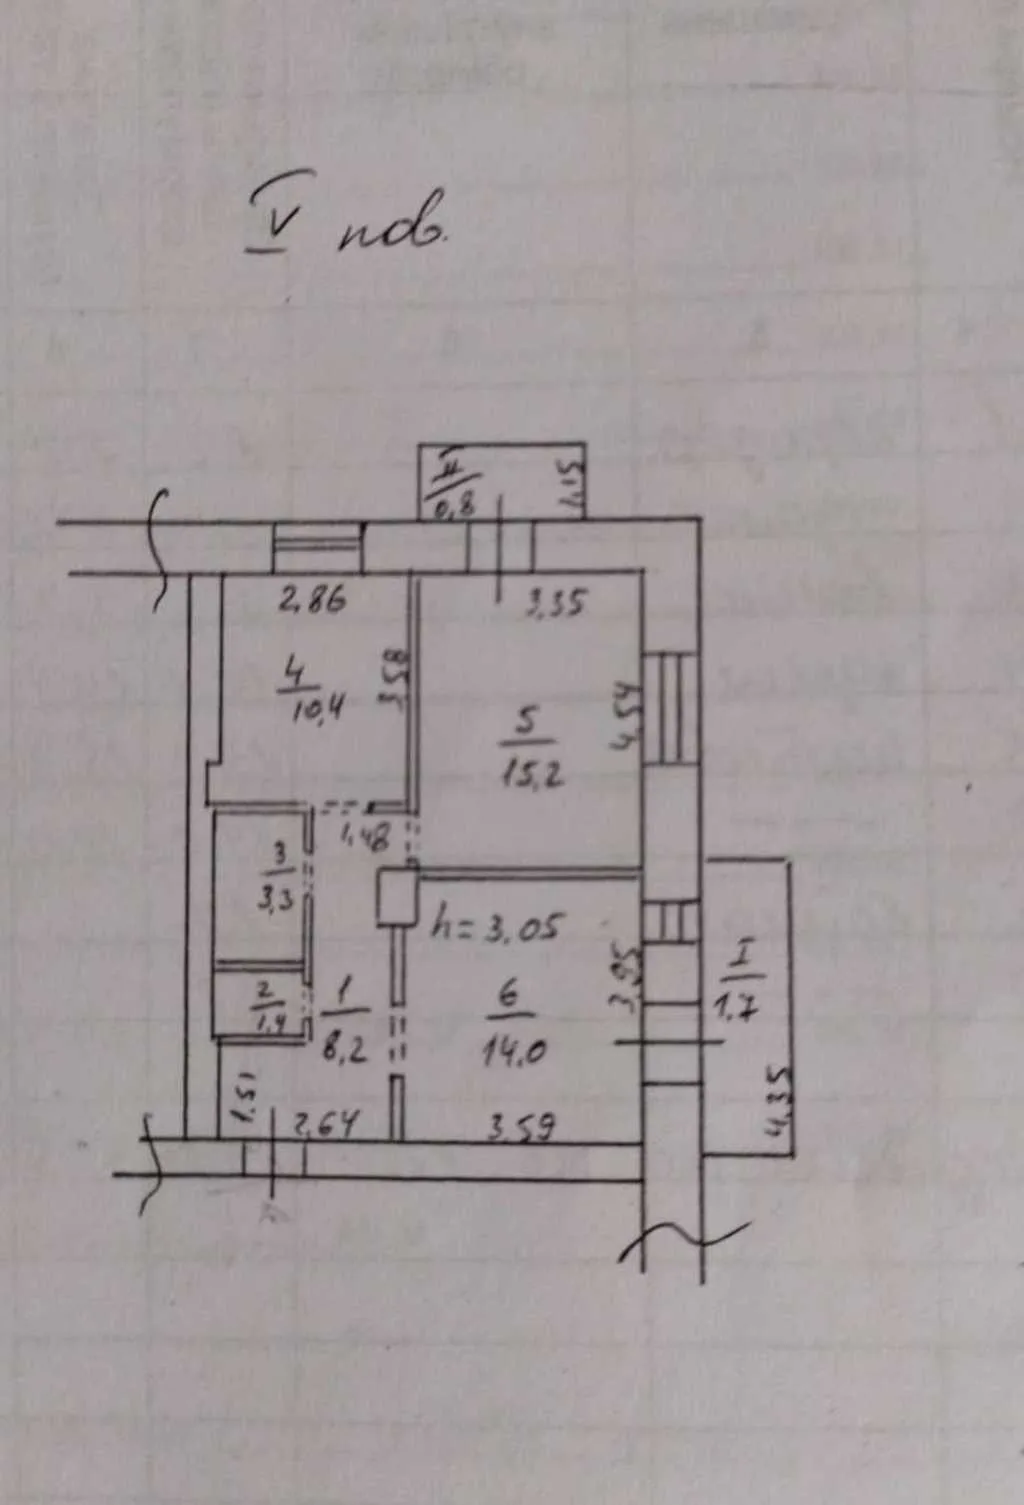 IV пов.
II
0,8
1,15
2,86
3,35
4
10,4
3,58
5
15,2
4,54
1,48
3
3,3
h=3,05
2
1,4
1
8,2
6
14,0
3,95
I
1,7
1,51
2,64
3,59
4,35